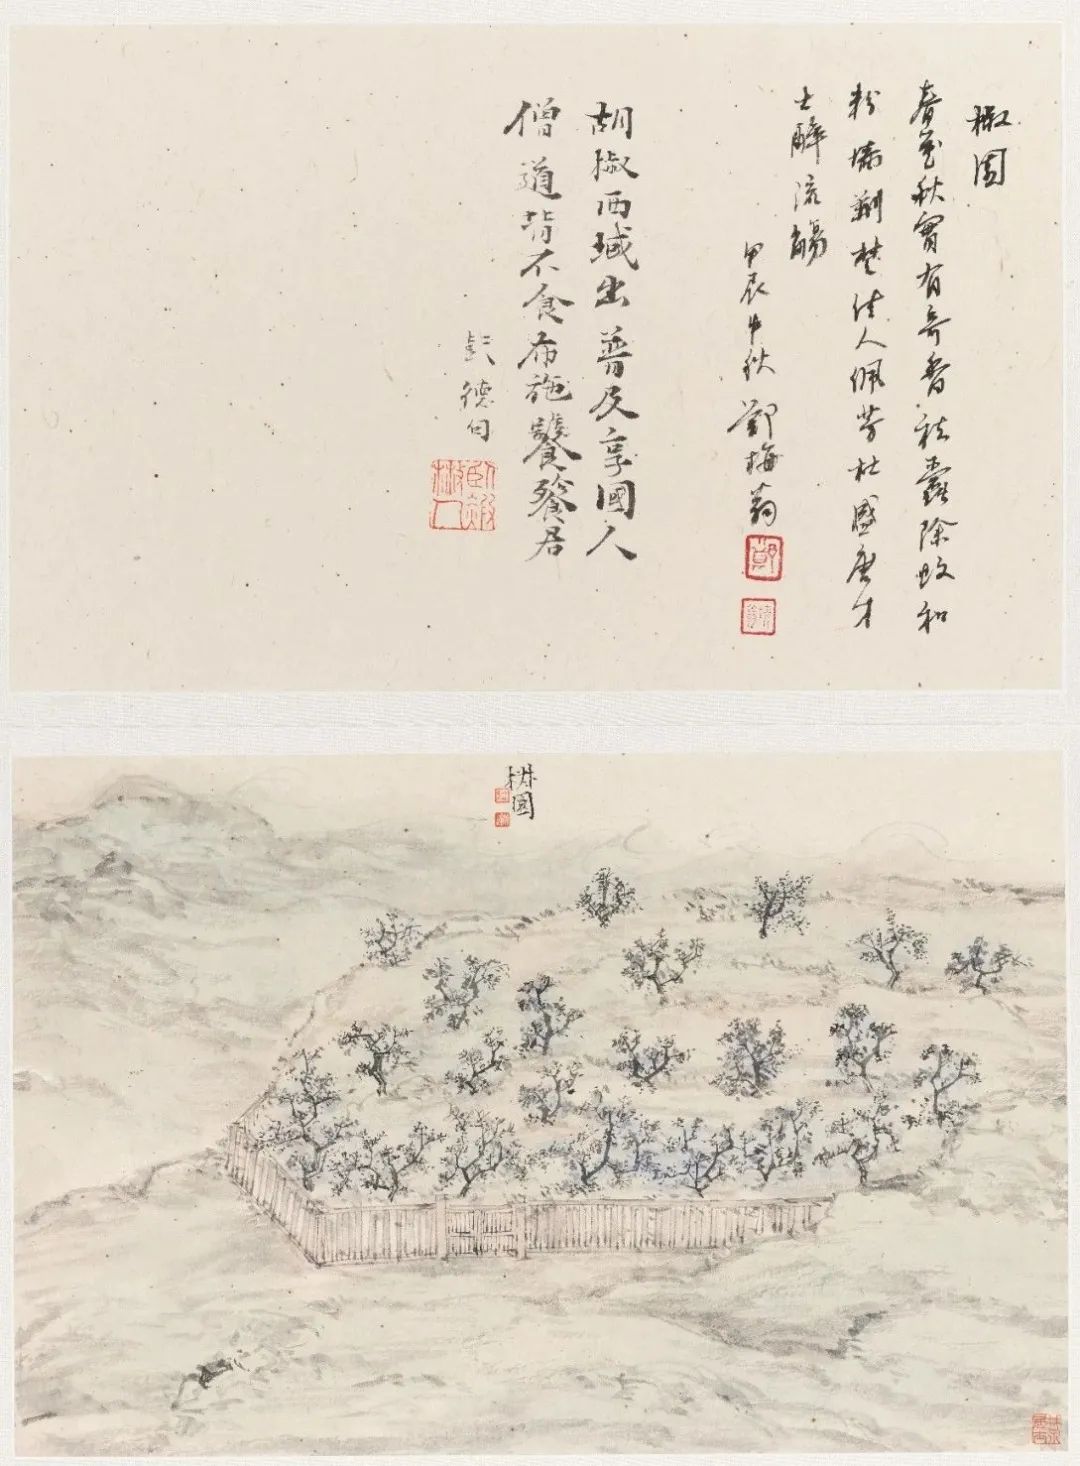 椒園
春花秋實有奇香祛蠹除蚊和
粉墻荆楚佳人佩芳杜盛唐才
士醉流觴
甲辰中秋 鄭梅翁
胡椒西域出普及享國人
僧道背不食布施饕餮君
德句
椒園